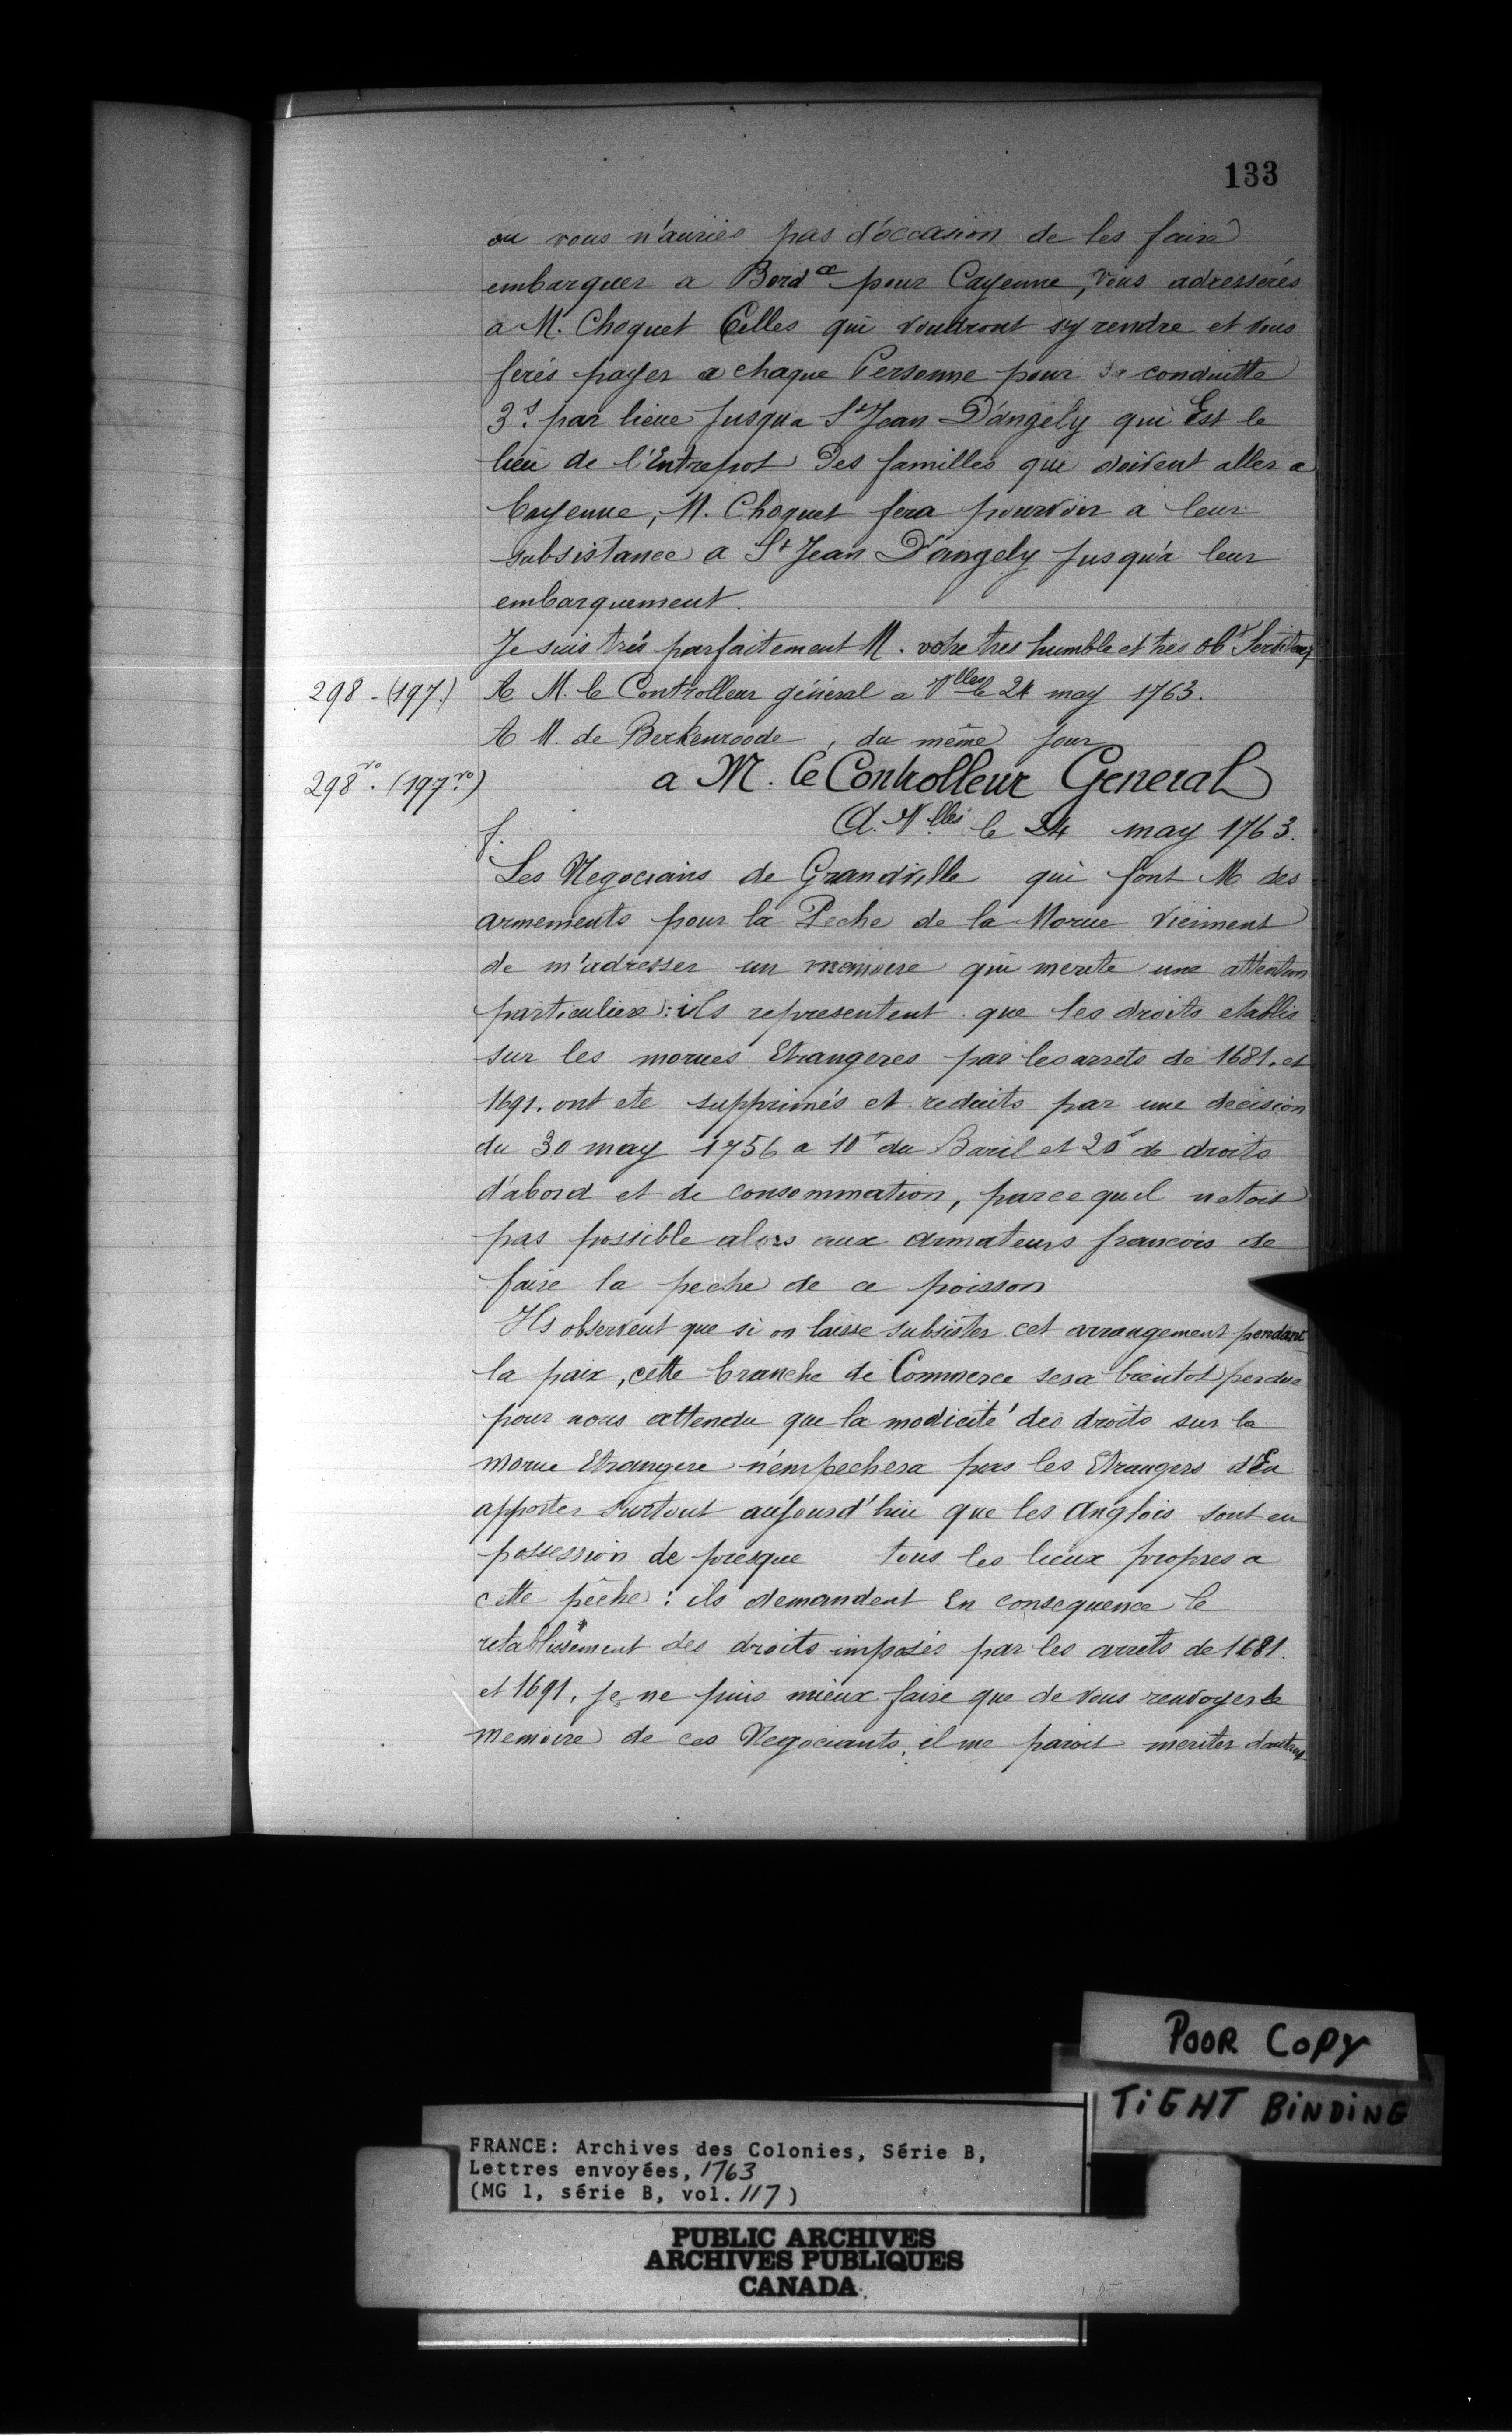 133
ou vous n'auriés pas d'occasion de les faire
embarquer a Bord.x pour Cayenne, vous adresserés
a M. Choquet Celles qui voudront sy rendre et vous
ferés payer a chaque Personne pour sa conduitte
3.s par lieue jusqu'a St Jean D'angely qui Est le
lieu de l'Entrepot Des familles qui doivent aller a
Cayenne, M. Choquet fera pourvoir a leur
subsistance a St Jean D'angely jusqu'a leur
embarquement.
Je suis très parfaitement M. votre tres humble et tres obt Serviteur
298 - (197.) A M. le Controlleur général a Vlles le 24 may 1763.
A M. de Berkenroode, du même jour
298 vo. (197 vo.) a M. le Controlleur General
A. Vlles le 24 may 1763.
f.
Les Negocians de Grandville qui font M des
armements pour la Peche de la Morue viennent
de m'adresser un memoire qui merite une attention
particuliere: ils representent que les droits etablis
sur les morues Etrangeres par les arrets de 1681. et
1691. ont ete supprimés et reduits par une decision
du 30 may 1756 a 10s du Baril et 20s de droits
d'abord et de consommation, parce quil netoit
pas possible alors aux armateurs francois de
faire la peche de ce poisson
Ils observent que si on laisse subsister cet arrangement pendant
la paix, cette branche de Commerce sera bientot perdue
pour nous attendu que la modicité des droits sur la
morue Etrangere n'empechera pas les Etrangers d'En
apporter surtout aujourd'hui que les Anglois sont en
possession de presque tous les lieux propres a
cette pêche: ils demandent En consequence le
retablissement des droits imposés par les arrets de 1681.
et 1691. je ne puis mieux faire que de vous renvoyer le
memoire de ces Negociants. il me paroit meriter d'autant
POOR COPY
TIGHT BINDING
FRANCE: Archives des Colonies, Série B,
Lettres envoyées, 1763
(MG 1, série B, vol. 117)
PUBLIC ARCHIVES
ARCHIVES PUBLIQUES
CANADA